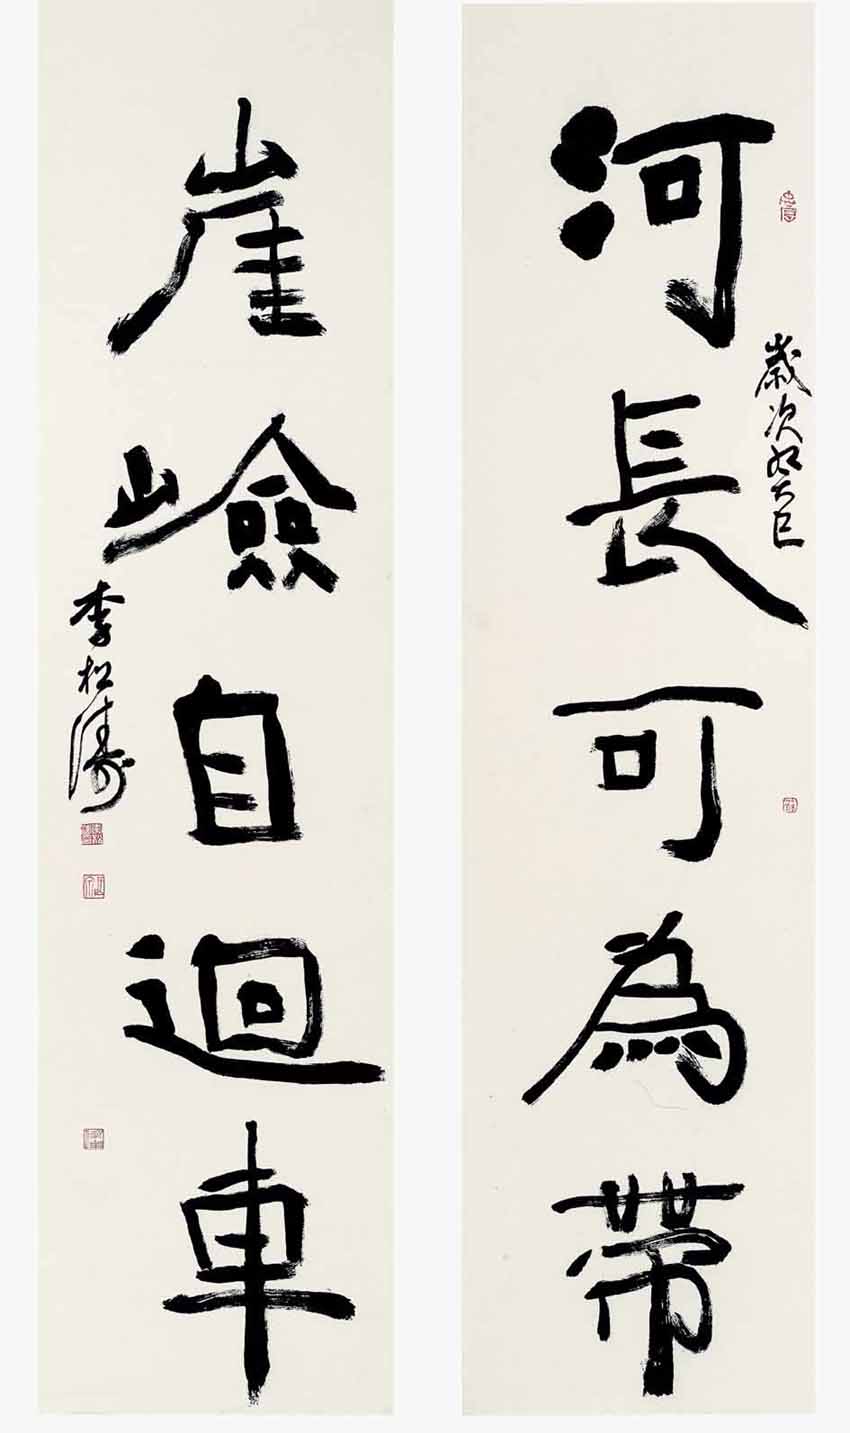 河長可為帶
歲次癸巳
崖嶮自迴車
李松濤